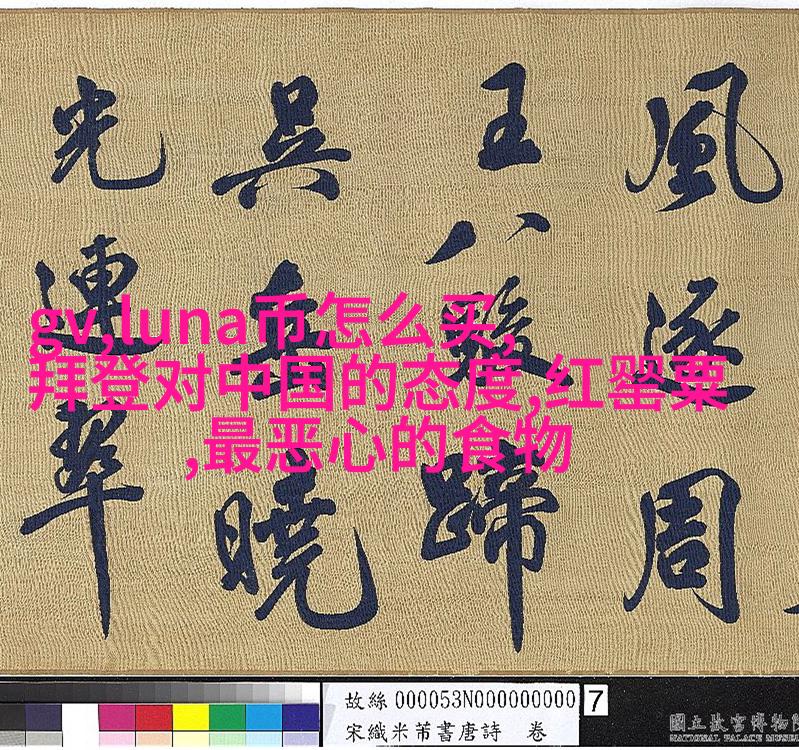 風逐周
王八駿蹄
吳岳曉
光連翠
gv,luna币怎么买,
拜登对中国的态度,红罂粟
,最恶心的食物
故絲000053N000000000 7
宋織米芾書唐詩 卷
國立故宮博物院
NATIONAL PALACE MUSEUM